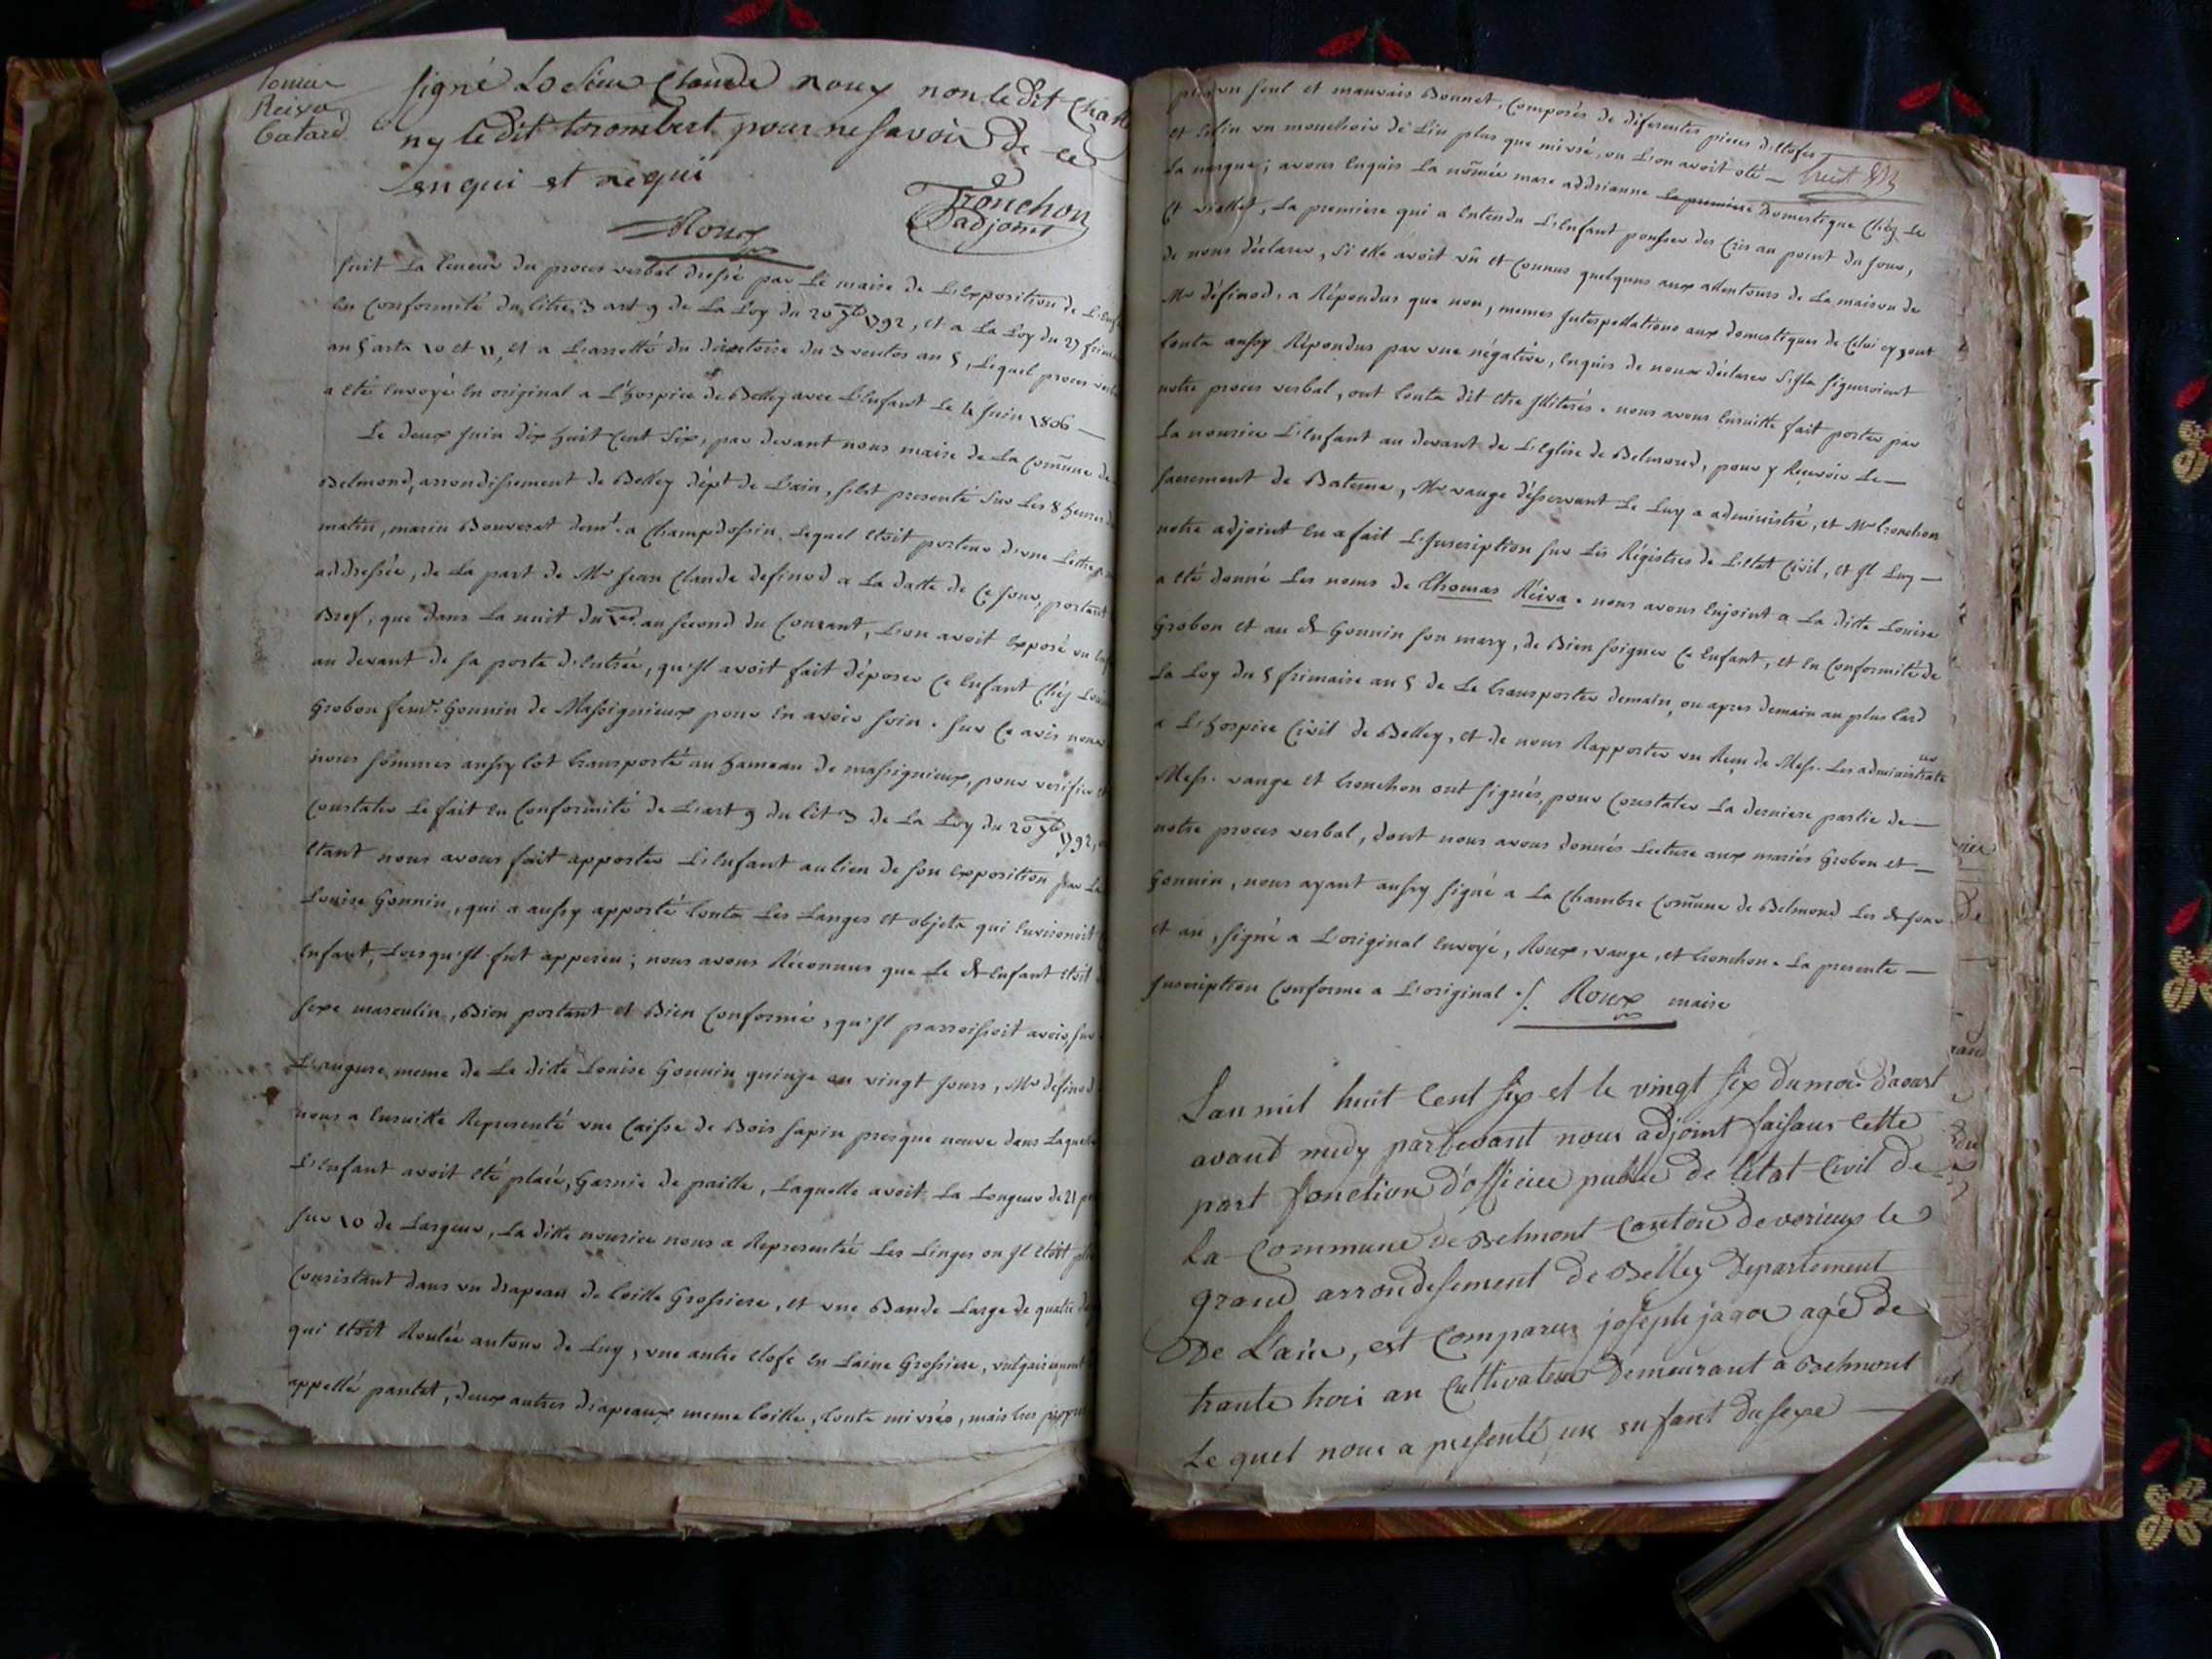 Reiva
batard
signé Le sieur Claude Roux non le dit
ny le dit trombert pour ne savoir de ce
enqui et requi
Tronchon
adjoint
Roux
suit La teneur du proces verbal dressé par Le maire de L'exposition de
en Conformité du titre 3 art 9 de La Loy du 20 7bre 1792, et a La Loy du 27
an 5 arts 10 et 11, et a L'arretté du directoire du 3 ventos an 5, Lequel proces
a eté envoyé en original a L'hospice de Belley avec L'enfant Le 4 juin 1806 —
Le deux juin dix huit Cent Six, par devant nous maire de La Comune de
Belmond, arrondissement de Belley dépt de L'ain, s'est presenté sur Les 8 heures
matin, marin Bouverat demt. a Champdossin Lequel etoit porteur d'une Lettre
addressée, de La part de Mr jean Claude definod a La datte de Ce jour, portant
Bref, que dans La nuit du au second du Courant, L'on avoit exposé un
au devant de sa porte d'entrée, qu'jl avoit fait déposer Ce enfant Chéz
Grobon feme. Gonnin de Massignieux pour en avoir soin. sur Ce avis nous
nous sommes aussy tot transporté au hameau de massignieux, pour verifier et
Constater Le fait en Conformité de L'art 9 du tit 3 de La Loy du 20 7bre 1792,
etant nous avons fait apporter L'enfant au lieu de son exposition par La
Louise Gonnin, qui a aussy apporté touts Les Langes et objets qui environoit
enfant, Lorsqu'jl fut apperçu; nous avons Réconnus que Le dt enfant etoit
sexe masculin, Bien portant et Bien Conformé, qu'jl parroissoit avoir, sur
L'augure meme de La ditte Louise Gonnin quinze ou vingt jours, Mr définod
nous a ensuitte Representé une Caisse de Bois sapin presque neuve dans Laquelle
L'enfant avoit eté placé, Garnie de paille, Laquelle avoit La Longeur de 21
sur 10 de Largeur, La ditte nourice nous a Representée Les Linges ou jl etoit
Consistant dans un drapeau de toille Grossiere, et une Bande Large de quatre
qui etoit Roulée autour de Luy, une autre etofe en Laine Grossiere, vulgairement
appellé pantet, deux autres drapeaux meme toille, touts mi usés, mais tres
plus un seul et mauvais Bonnet, Composés de diferentes pieces d'etofes
et enfin un mouchoir de Lin plus que mi usé, ou L'on avoit oté —
La marque; avons enquis La nomée marc addrianne La premiere Domestique Chéz Le
La premiere qui a entendu L'enfant pousser des Cris au point du jour,
de nous déclarer, si elle avoit vû et Connus quelquns aux allentours de La maison de
Mr définod, a Répondus que non, memes jnterpellations aux domestiques de Celui cy, ont
touts aussy Répondus par une négative, enquis de nous déclarer s'jls signeroient
notre proces verbal, ont touts dit etre jlliterés. nous avons ensuitte fait porter par
La nourice L'enfant au devant de L'Eglise de Belmond, pour y Recevoir Le —
sacrement de Bateme, Mr vauge déssservant Le Luy a administré, et Mr tronchon
notre adjoint en a fait L'jnscription sur Les Régistres de L'etat Civil, et jl Luy —
a eté donné Les noms de Thomas Réiva. nous avons enjoint a La ditte Louise
Grobon et au dt Gonnin son mary, de Bien soigner Ce enfant, et en Conformité de
La Loy du 5 frimaire an 5 de Le transporter demain, ou apres demain au plus tard
a L'hospice Civil de Belley, et de nous Rapporter un Reçu de Mess. Les administrateurs
Mess. vauge et tronchon ont signés, pour Constater La derniere partie de —
notre proces verbal, dont nous avons donnés Lecture aux mariés Grobon et —
Gonnin, nous ayant aussy signé a La Chambre Comune de Belmond Les dt jour
et an, signé a L'original envoyé, Roux, vauge, et tronchon. La presente —
jnscription Conforme a L'original ./. Roux maire
Lan mil huit Cent six et le vingt six du mois d'aoust
avant midy pardevant nous adjoint faisant cette
part fonction d'officier public de l'état Civil de
La Commune de Belmont canton de virieux le
grand arrondesement de Belley Departement
De L'ain, est Comparus joseph agé de
trante trois an Cultivateur Demeurant a Belmont
Le quel nous a presenté un enfant du sexe —